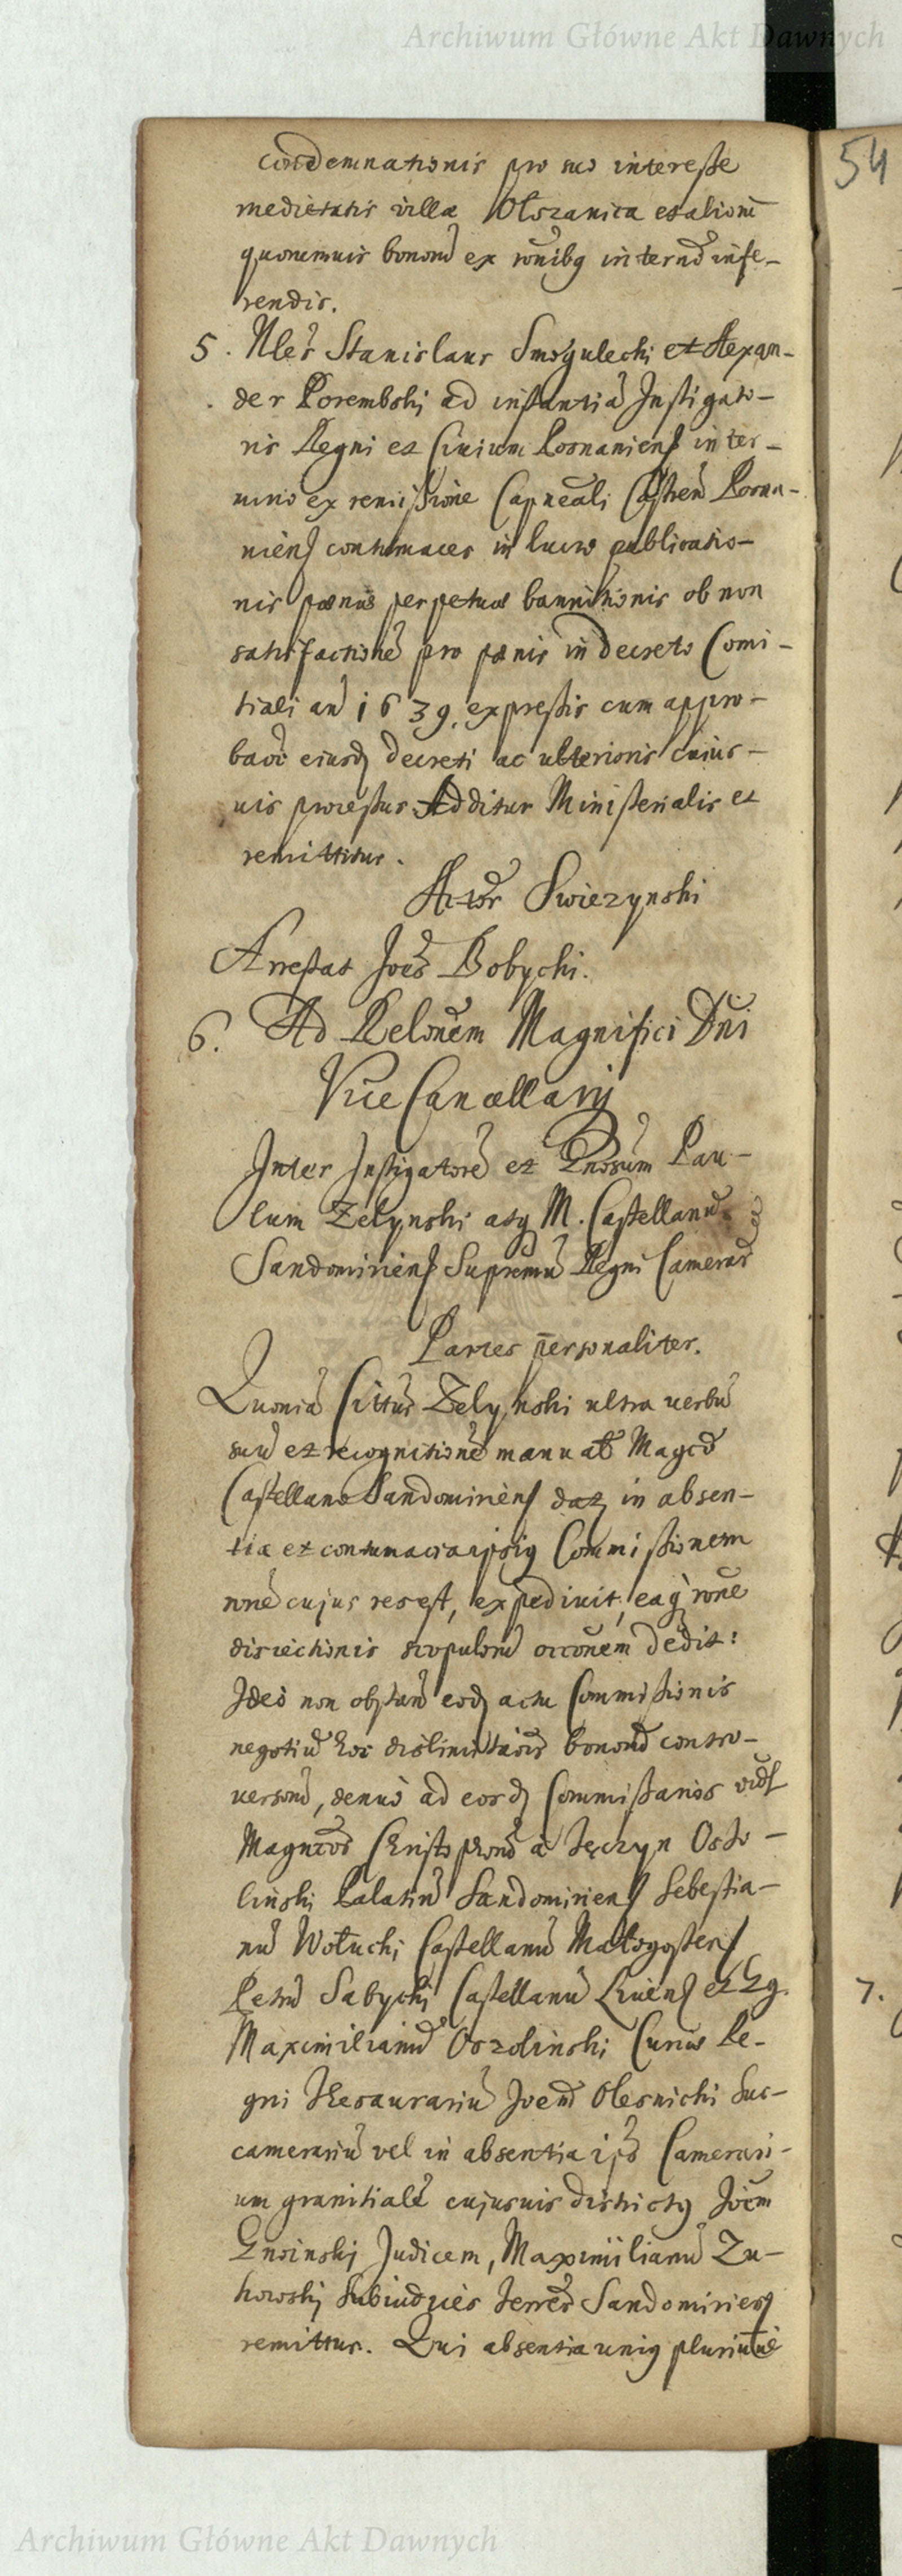 Archiwum Główne Akt Dawnych
54
condemnationis pro suo interesse
medietatis villæ Olszanica et aliorũ
quorumvis bonorũ ex rõnibq in ternd infe-
rendis.
5. Nles Stanislaus Smogulecki et Alexan-
der Porembski ad instantiã Instigato-
ris Regni et Civium Posnaniens in ter-
mino ex remissione Capneali Castren Posna-
niens contumaces in lucro publicatio-
nis pœnæ perpetuæ bannitionis ob non
satisfactionẽ pro pœnis in decreto Comi-
tiali añ 1639. expressis cum appro-
baõe eiusd decreti ac ulterioris cuius-
vis processus. Additur Ministerialis et
remittitur.
Actor Swiezynski
Arrestat Joes Bobychi.
6. Ad Relõnem Magnifici Dñi
Vice Cancellarij
Inter Instigatorẽ et Gnosum Pau-
lum Zelynski atq M. Castellanũ
Sandomiriens Supremũ Regni Camerar
Partes personaliter.
Quoniã Cittus Zelynski ultra verbũ
suũ et recognitionẽ manualẽ Magco
Castellano Sandomiriens datz in absen-
tia et contumacia ipsiq Commissionem
nõne cujus res est, expedivit, eaq rõne
disiectionis scopulorũ occõnem dedit:
Ideo non obstan eod actu Commissionis
negotiũ hoc dislimitaõis bonorũ contro-
versorũ, denuò ad eosd Commissarios vidl
Magncos Christophorũ à Tęczyn Osso-
linski Palatinũ Sandomiriens Sebestia-
nũ Wołucki Castellanũ Małogostens
Petrũ Sabychi Castellanũ et Gg.
Maximilianũ Oszolinski Curiæ Re-
gni Thesaurariũ Joem Olesnichi Suc-
camerariũ vel in absentia ips Camerari-
um granitialẽ cujusvis districtq Joem
Gnoinski Judicem, Maximilianũ Zu-
howski Subiudices terres Sandomiriens
remittur. Qui absentia uniq
7.
Archiwum Główne Akt Dawnych